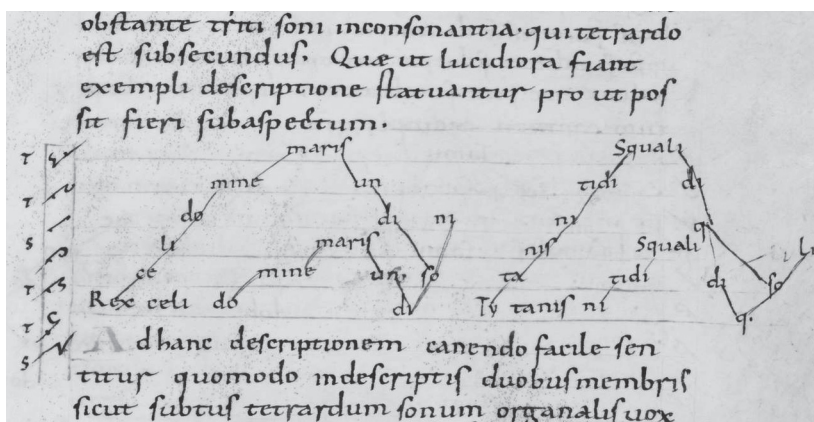 obstante triti soni inconsonantia. qui tetrardo
est subsecundus. Quæ ut lucidiora fiant
exempli descriptione statuantur pro ut pos
sit fieri subaspectum.
T maris Squali
T mine un tidi di
S do di ni ni q.
T li maris nis Squali li
T ce mine un so ta tidi di so
T Rex celi do di Ty tanis ni q.
S
Adhanc descriptionem canendo facile sen
titur quomodo indescriptis duobusmembris
sicut subtus tetrardum sonum organalisuox